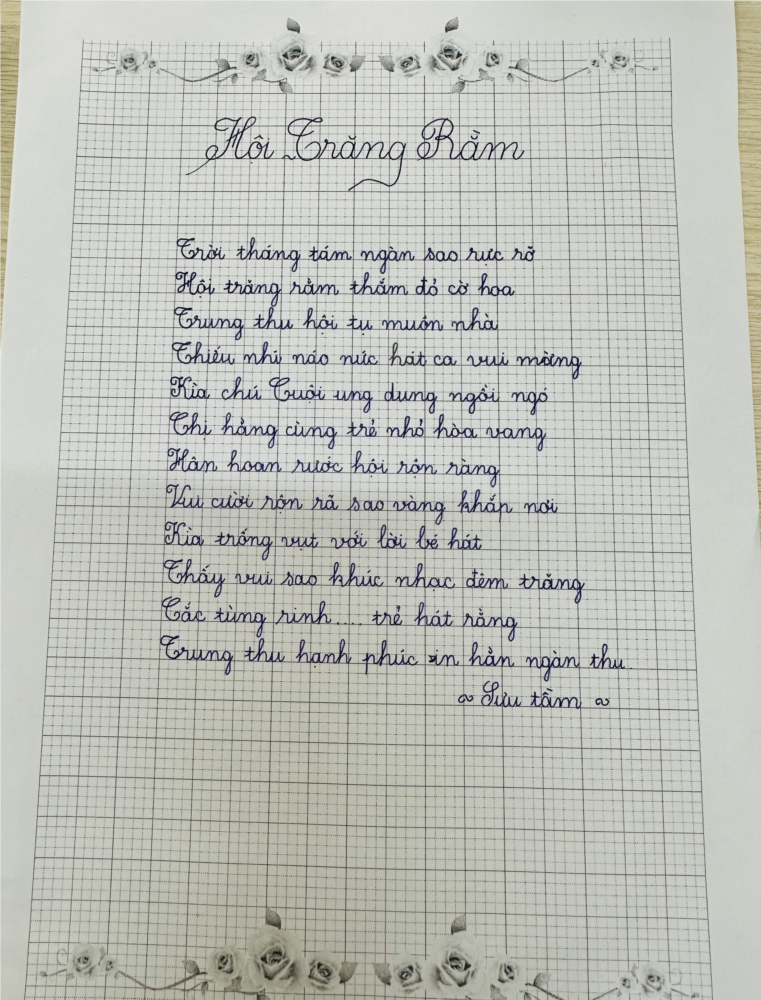 Hội Trăng Rằm
Trời tháng tám ngàn sao rực rỡ
Hội trăng rằm thắm đỏ cờ hoa
Trung thu hội tụ muôn nhà
Thiếu nhi náo nức hát ca vui mừng
Kìa chú Cuội ung dung ngồi ngó
Chị hằng cùng trẻ nhỏ hòa vang
Hân hoan rước hội rộn ràng
Vui cười rộn rã sao vàng khắp nơi
Kìa trống vụt với lời bé hát
Thấy vui sao khúc nhạc đêm trăng
Cắc tùng rinh.... trẻ hát rằng
Trung thu hạnh phúc in hằn ngàn thu.
~ Sưu tầm ~